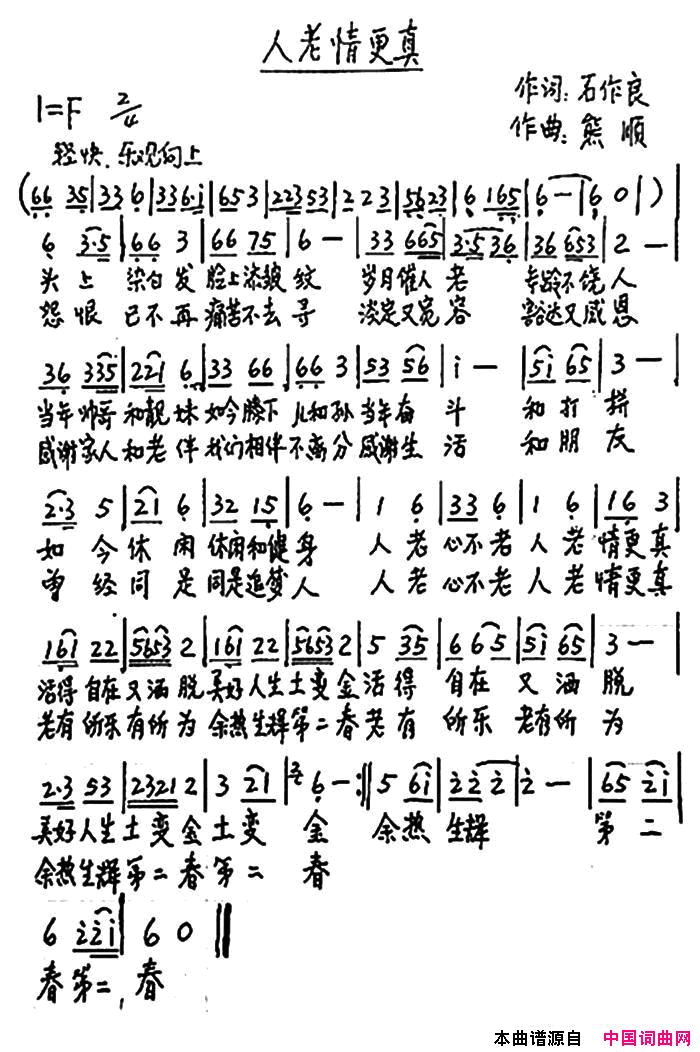 人老情更真
作词：石作良
1=F 2/4
作曲：熊顺
轻快、乐观向上
(66 35|33 6|336·i|653|22353|223|5623|6 165|6—|6 0|)
6 3·5|66 3|66 75|6—|33 665|3·536|36 653|2—|
头上 染白发 脸上添皱纹 岁月催人老 年龄不饶人
怨恨 已不再 痛苦不去寻 淡定又宽容 豁达又感恩
36 335|221 6|33 66|66 3|53 56|i—|5i 65|3—|
当年帅哥和靓妹如今膝下儿和孙当年奋斗 和打拼
感谢家人和老伴我们相伴不离分感谢生活 和朋友
2·3 5|21 6|32 15|6—|1 6|33 6|1 6|16 3|
如今休闲休闲和健身 人老心不老人老情更真
曾经同是同是追梦人 人老心不老人老情更真
161 22|5653 2|161 22|5653 2|5 35|6 65|5i 65|3—|
活得自在又洒脱美好人生土变金活得 自在 又洒脱
老有所乐有所为余热生辉第二春老有 所乐 老有所为
2·3 53|2321 2|3 21|3/4 6—:‖5 6i|2 2 2|2—|65 2i|
美好人生土变金土变 金 余热生辉 第二
余热生辉第二春第二 春
6 i2i|6 0‖
春第二，春
本曲谱源自 中国词曲网